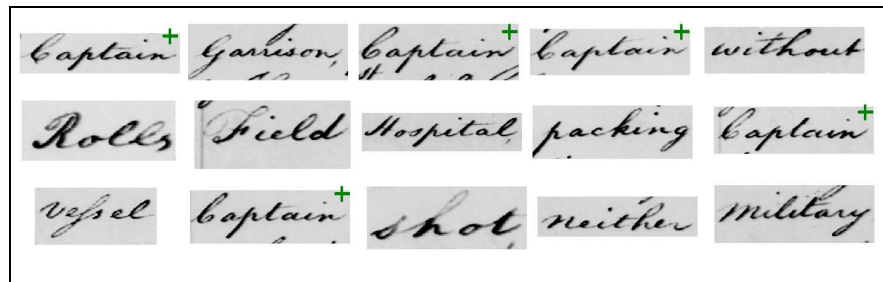 Captain Garrison, Captain Captain without
Rolls Field Hospital, packing Captain
Vessel Captain shot neither Military